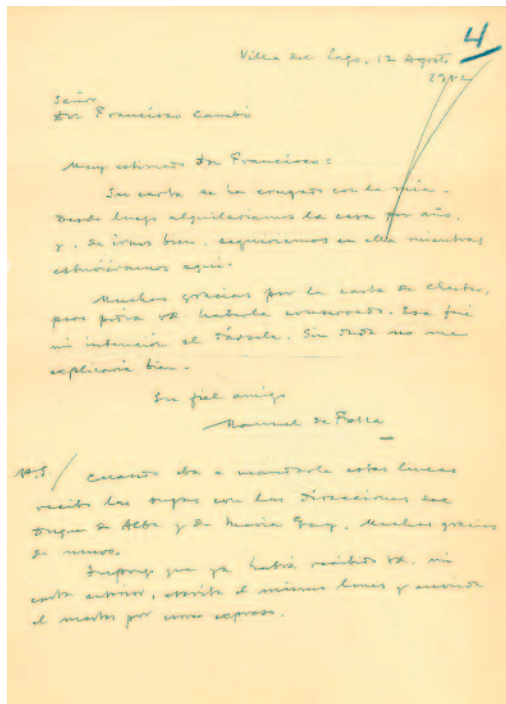 4
Villa del Lago, 12 Agosto
1942
Señor
Don Francisco Cambó
Muy estimado Don Francisco:
Su carta se ha cruzado con la mía.
Desde luego alquilaríamos la casa por año,
y, de irnos bien, seguiríamos en ella mientras
estuviéramos aquí.
Muchas gracias por la carta de Chester,
pero podía vd. haberla conservado. Esa fué
mi intención al dársela. Sin duda no me
explicaría bien.
Su fiel amigo
Manuel de Falla
P.S./ Cuando iba a mandarle estas líneas
recibo las suyas con las direcciones del
Duque de Alba y de María Gay. Muchas gracias
de nuevo.
Supongo que ya habrá recibido vd. mi
carta anterior, escrita el mismo lunes y enviada
el martes por correo expreso.